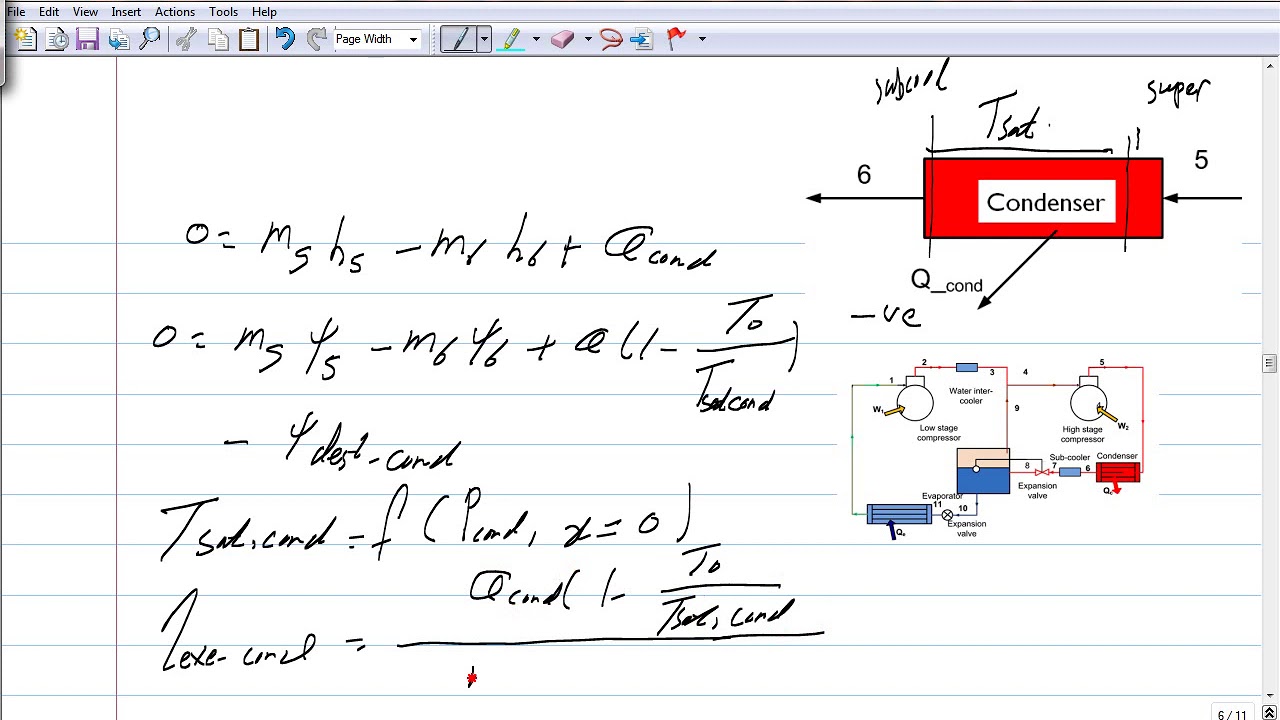 File Edit View Insert Actions Tools Help
Page Width
subcool
super
Tsat.
6
5
Condenser
Q_cond
-ve
0 = m5 h5 - m6 h6 + Qcond
0 = m5 ψ5 - m6 ψ6 + Q (1 - T0 / Tsat,cond)
- ψdest-cond
Tsat,cond = f (Pcond, x=0)
ηexe-cond = Qcond (1 - T0 / Tsat,cond)
1
2
3
4
5
W1
Water inter-
cooler
9
W2
Low stage
compressor
High stage
compressor
Sub-cooler
Condenser
8
7
6
Expansion
valve
Qc
Evaporator
11
10
Expansion
valve
Qe
6 / 11